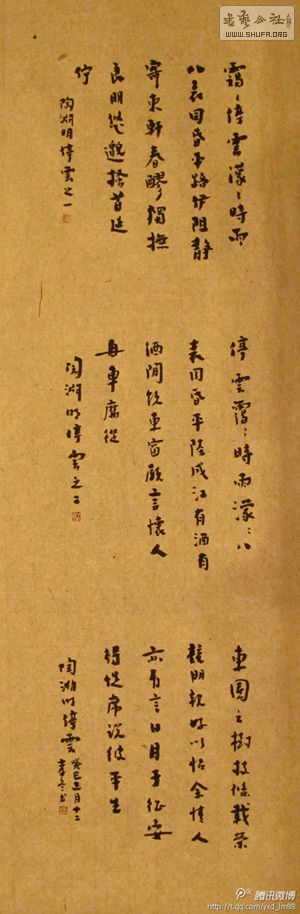 書藝公社
WWW.SHUFA.ORG
靄〻停雲濛〻時雨
八表同昏平路伊阻静
寄東軒春醪獨撫
良朋悠邈搔首延
佇
陶淵明停雲之一
停雲靄〻時雨濛〻八
表同昏平陸成江有酒有
酒閒飲東窗願言懷人
舟車靡從
陶淵明停雲之二
東園之樹枝條載榮
競朋親好以怡余情人
亦有言日月于征安
得促席說彼平生
陶淵明停雲
癸巳月十二
书
腾讯微博
http://t.qq.com/yxd_lm88